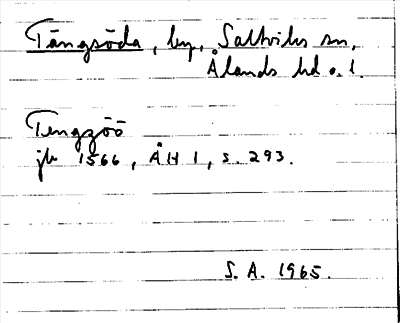 Tängsöda, by, Saltviks sn,
Ålands hd o. l.
Tengzöö
jb 1566, ÅH 1, s. 293.
S. A. 1965.